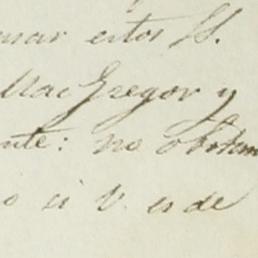 mar estos SS.
MacGregor y
nte: no obstan
o si V. es de